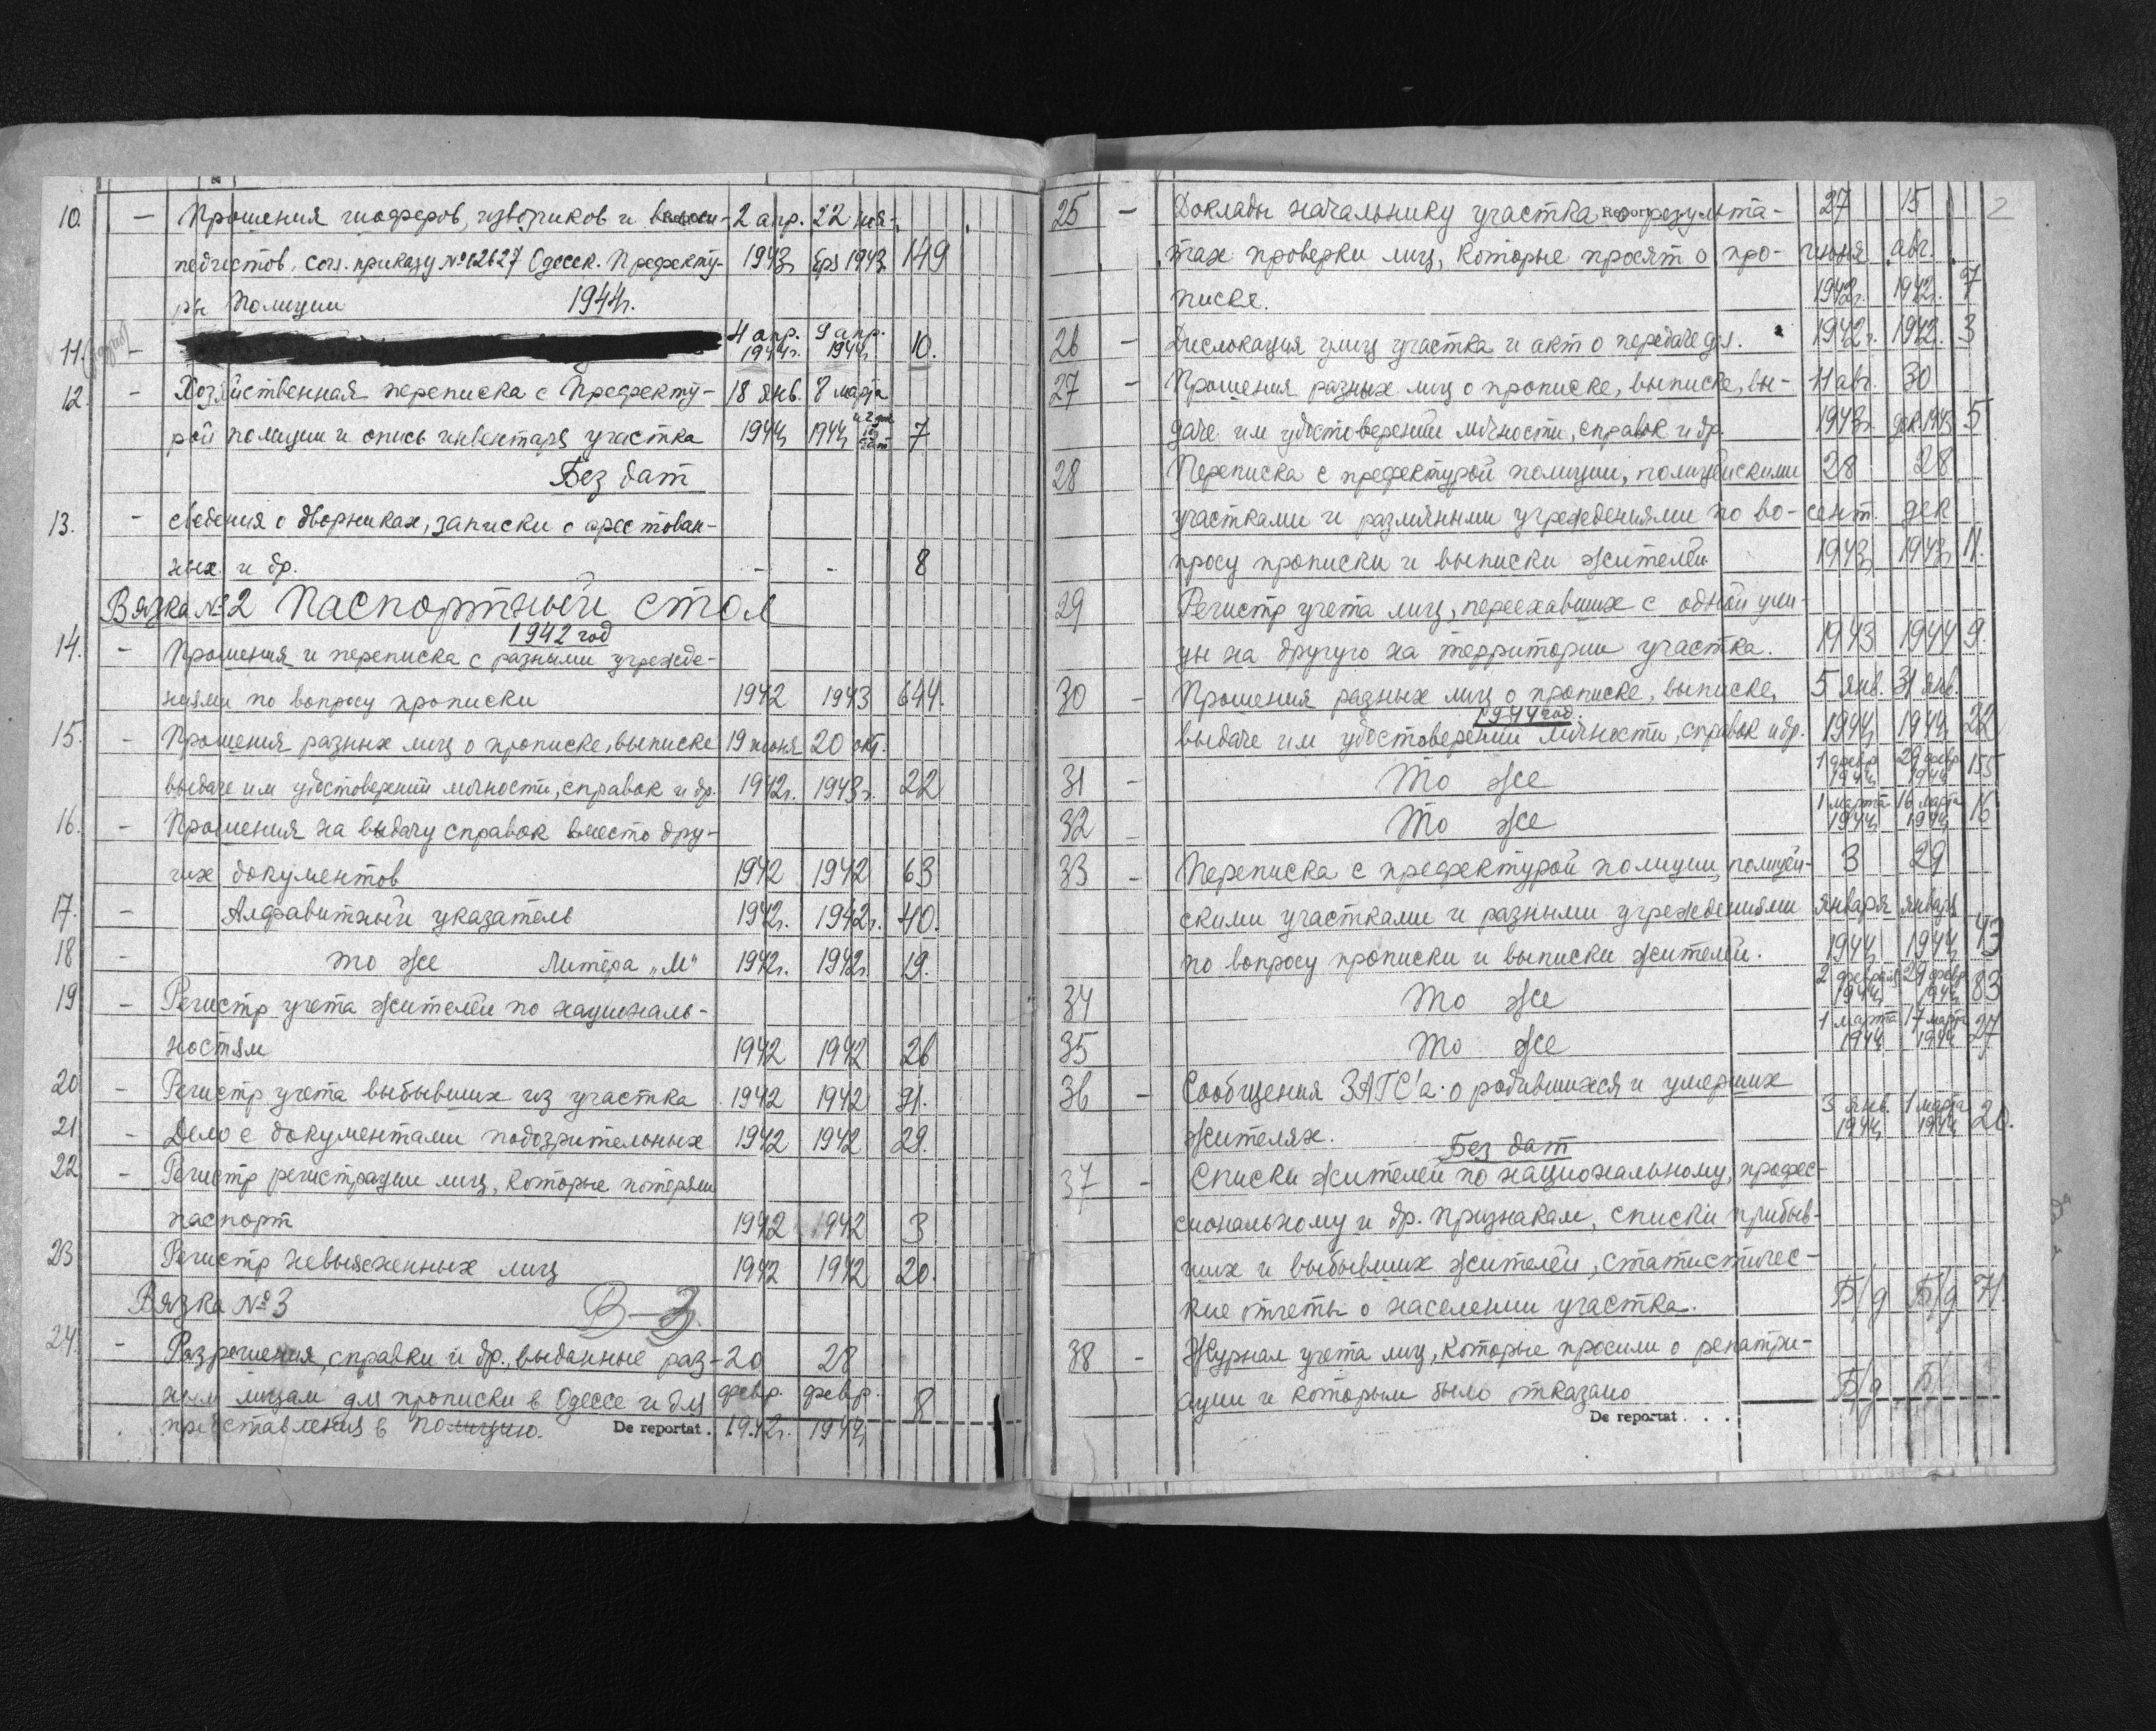 10. – Прошения шоферов, извозчиков и велоси- 2 апр. 22 ноя-
педистов, согл. приказу №12627 Одесск. Префекту- 1943г. бря 1943 149
ры Полиции 1944г.
11. – 4 апр. 1944г. 9 апр. 1944г. 10.
12. – Хозяйственная переписка с Префекту- 18 янв. 8 марта
рой полиции и опись инвентаря участка 1944г. 1944г. 7
Без дат
13. – Сведения о дворниках, записки о арестован-
ных и др. – – 8
Вязка №2 Паспортный стол
1942 год
14. – Прошения и переписка с разными учрежде-
ниями по вопросу прописки 1942 1943 644.
15. – Прошения разных лиц о прописке, выписке 19 июня 20 окт.
выдаче им удостоверений личности, справок и др. 1942г. 1943г. 22
16. – Прошения на выдачу справок вместо дру-
гих документов 1942 1942 63
17. – Алфавитный указатель 1942г. 1942г. 40.
18 – то же Литера „М" 1942г. 1942г. 19.
19 – Регистр учета жителей по националь-
ностям 1942 1942 26
20 – Регистр учета выбывших из участка 1942 1942 71.
21 – Дело с документами подозрительных 1942 1942 29.
22 – Регистр регистрации лиц, которые потеряли
паспорт 1942 1942 3
23 Регистр невыясненных лиц 1942 1942 20.
Вязка №3 В-3
24. – Разрешения, справки и др., выданные раз- 20 28
ным лицам для прописки в Одессе и для февр. февр. 8
представления в полицию. De reportat. 1942г. 1944г.
2
25 – Доклады начальнику участка Report результа- 27 15
тах проверки лиц, которые просят о про- июня авг.
писке. 1942г. 1942г. 7
26 – Дислокация улиц участка и акт о передаче дел. 1942г. 1942. 3
27 – Прошения разных лиц о прописке, выписке, вы- 11 авг. 30
даче им удостоверений личности, справок и др. 1943г. дек. 1943 5
28 Переписка с префектурой полиции, полицейскими 28 28
участками и различными учреждениями по во- сент. дек
просу прописки и выписки жителей 1943г. 1943г. 11.
29 Регистр учета лиц, переехавших с одной ули-
цы на другую на территории участка. 1943 1944 9.
30 – Прошения разных лиц о прописке, выписке, 5 янв. 31 янв.
1944 год.
выдаче им удостоверений личности, справок и др. 1944г. 1944г. 22
31 – То же 1 февр 1944г. 29 февр 1944г. 155
32 – То же 1 марта 1944г. 16 марта 1944г. 16
33 – Переписка с префектурой полиции, полицей- 3 29
скими участками и разными учреждениями января января
по вопросу прописки и выписки жителей. 1944г. 1944г. 43
34 То же 2 февраля 1944г. 29 февр 1944г. 83
35 То же 1 марта 1944г. 17 марта 1944г. 27
36 – Сообщения ЗАГС'а о родившихся и умерших
жителях. 3 янв. 1944г. 1 марта 1944г. 20.
Без дат
37 – Списки жителей по национальному, профес-
сиональному и др. признакам, списки прибыв-
ших и выбывших жителей, статистичес-
кие отчеты о населении участка. Б/д Б/д 71.
38 – Журнал учета лиц, которые просили о репатри-
ации и которым было отказано Б/д Б/
De reportat . . .